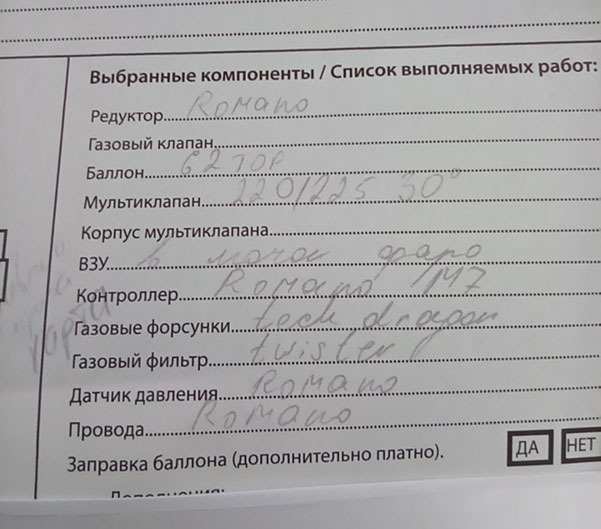 Выбранные компоненты / Список выполняемых работ:
Редуктор Romano
Газовый клапан
Баллон 62 тор
Мультиклапан 220/225 30°
Корпус мультиклапана
ВЗУ в
Контроллер Romano M7
Газовые форсунки tech dragon
Газовый фильтр twister
Датчик давления Romano
Провода Romano
Заправка баллона (дополнительно платно). ДА НЕТ